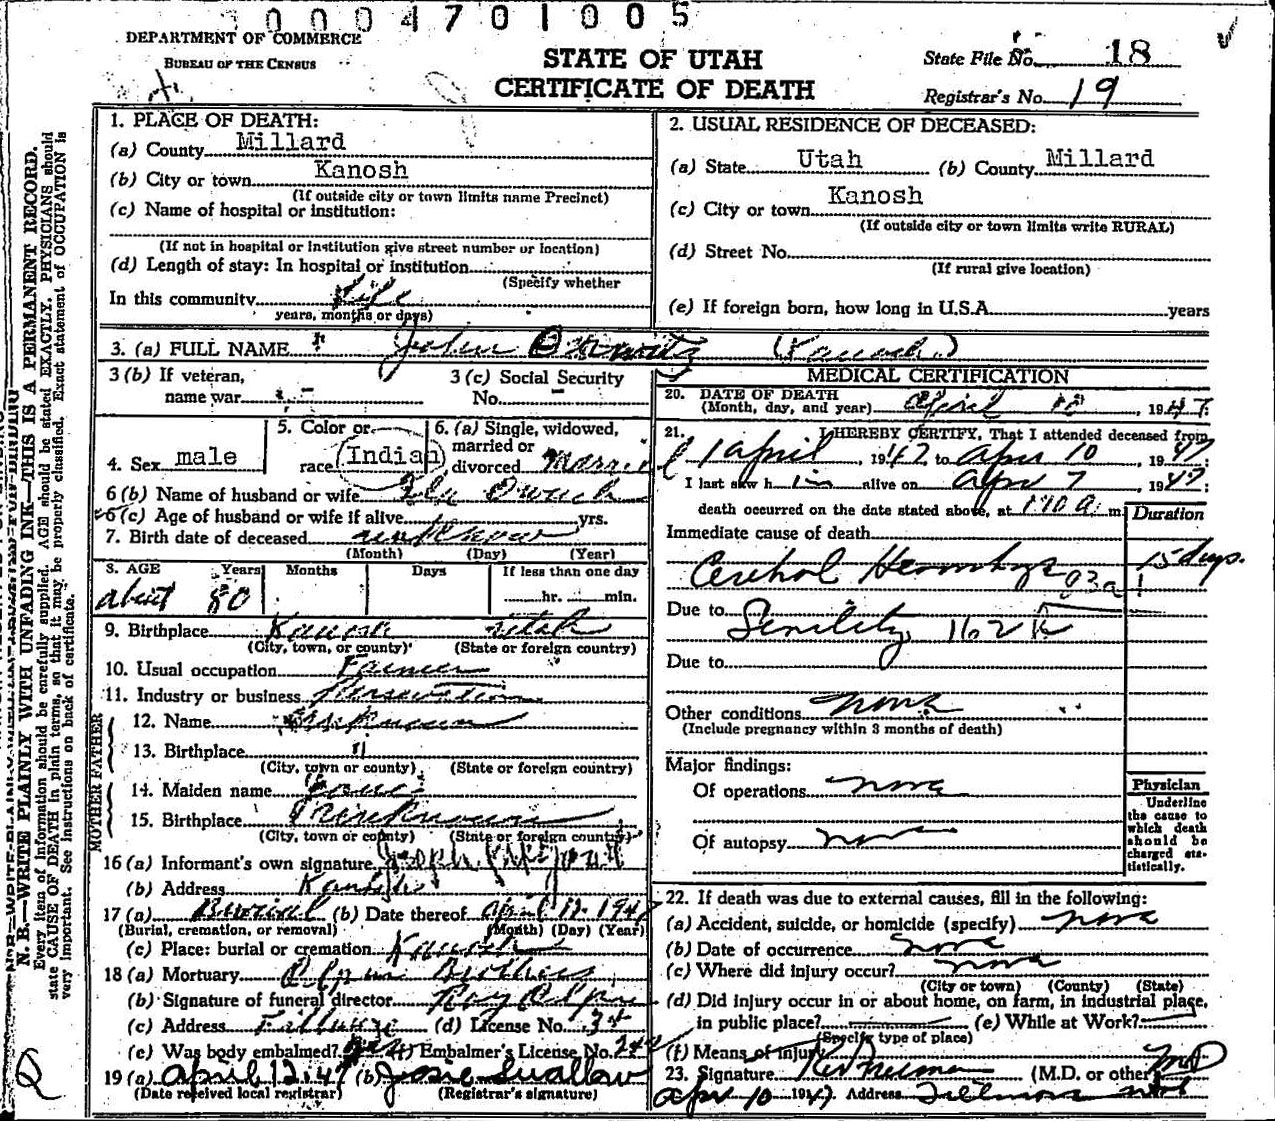 0004701005
DEPARTMENT OF COMMERCE
BUREAU OF THE CENSUS
STATE OF UTAH
CERTIFICATE OF DEATH
State File No. 18
Registrar's No. 19
N. B.—WRITE PLAINLY WITH UNFADING INK—THIS IS A PERMANENT RECORD.
Every item of information should be carefully supplied. AGE should be stated EXACTLY. PHYSICIANS should
state CAUSE OF DEATH in plain terms, so that it may be properly classified. Exact statement of OCCUPATION is
very important. See instructions on back of certificate.
1. PLACE OF DEATH:
(a) County Millard
(b) City or town Kanosh
(If outside city or town limits name Precinct)
(c) Name of hospital or institution:
(If not in hospital or institution give street number or location)
(d) Length of stay: In hospital or institution
(Specify whether
In this community Life
years, months or days)
2. USUAL RESIDENCE OF DECEASED:
(a) State Utah (b) County Millard
(c) City or town Kanosh
(If outside city or town limits write RURAL)
(d) Street No.
(If rural give location)
(e) If foreign born, how long in U.S.A. years
3. (a) FULL NAME John (Kanosh)
3 (b) If veteran,
name war -
3 (c) Social Security
No. -
4. Sex male
5. Color or
race Indian
6. (a) Single, widowed,
married or
divorced Married
6 (b) Name of husband or wife
6 (c) Age of husband or wife if alive yrs.
7. Birth date of deceased unknown
(Month) (Day) (Year)
8. AGE Years Months Days If less than one day
about 80 hr. min.
9. Birthplace Kanosh Utah
(City, town, or county) (State or foreign country)
10. Usual occupation Farmer
11. Industry or business
FATHER
12. Name Unknown
13. Birthplace "
(City, town or county) (State or foreign country)
MOTHER
14. Maiden name
15. Birthplace Unknown
(City, town or county) (State or foreign country)
16 (a) Informant's own signature Joseph
(b) Address Kanosh
17 (a) Burial (b) Date thereof April 12 1947
(Burial, cremation, or removal) (Month) (Day) (Year)
(c) Place: burial or cremation Kanosh
18 (a) Mortuary Olpin Brothers
(b) Signature of funeral director Roy Olpin
(c) Address Fillmore (d) License No. 34
(e) Was body embalmed? (f) Embalmer's License No.
19 (a) April 12, 47 (b) Josie Swallow
(Date received local registrar) (Registrar's signature)
MEDICAL CERTIFICATION
20. DATE OF DEATH
(Month, day, and year) April 10, 1947
21. I HEREBY CERTIFY, That I attended deceased from
1 April, 1947 to Apr 10, 1947
I last saw him alive on Apr 7 1947;
death occurred on the date stated above, at m.
Duration
Immediate cause of death
Cerebral Hemorhage 83a 15 days.
Due to Senility 162
Due to
Other conditions none
(Include pregnancy within 3 months of death)
Major findings:
Of operations none
Of autopsy none
Physician
Underline
the cause to
which death
should be
charged sta-
tistically.
22. If death was due to external causes, fill in the following:
(a) Accident, suicide, or homicide (specify) none
(b) Date of occurrence none
(c) Where did injury occur? none
(City or town) (County) (State)
(d) Did injury occur in or about home, on farm, in industrial place,
in public place? (e) While at Work?
(Specify type of place)
(f) Means of injury
23. Signature (M.D. or other) MD
Apr 10 1947 Address Fillmore